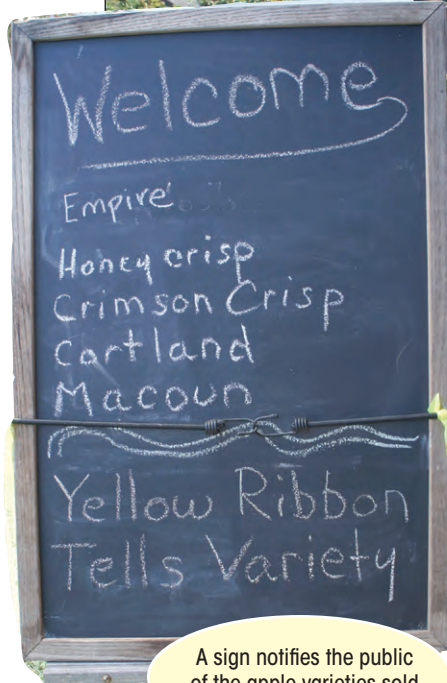 Welcome
Empire
Honeycrisp
Crimson Crisp
Cortland
Macoun
Yellow Ribbon
Tells Variety
A sign notifies the public
of the apple varieties sold